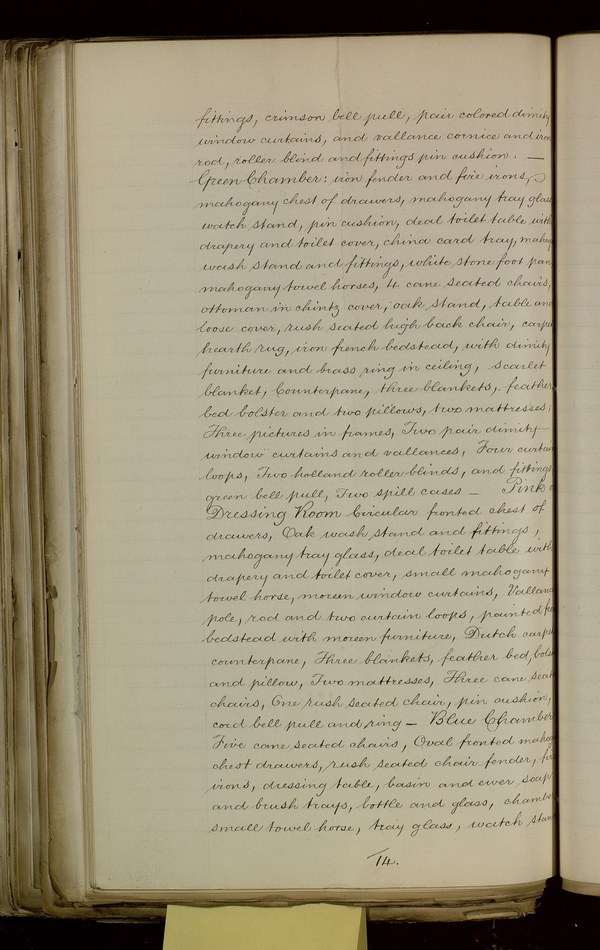 fittings, crimson bell pull, pair colored dimity
window curtains, and vallance cornice and iron
rod, roller blind and fittings pin cushion. —
Green Chamber: iron fender and fire irons,
mahogany chest of drawers, mahogany tray glass
watch stand, pin cushion, deal toilet table with
drapery and toilet cover, china card tray, mahog
wash stand and fittings, white stone foot pan
mahogany towel horses, 4 cane seated chairs,
ottoman in chintz cover, oak stand, table and
loose cover, rush seated high back chair, carpe
hearth rug, iron french bedstead, with dimity
furniture and brass ring in ceiling, scarlet
blanket, Counterpane, three blankets, feather
bed bolster and two pillows, two mattresses,
Three pictures in frames, Two pair dimity
window curtains and vallances, Four curtain
loops, Two holland roller blinds, and fittings
green bell pull, Two spill cases — Pink
Dressing Room Circular fronted chest of
drawers, Oak wash stand and fittings,
mahogany tray glass, deal toilet table with
drapery and toilet cover, small mahogany
towel horse, moreen window curtains, Vallanc
pole, rod and two curtain loops, painted
bedstead with moreen furniture, Dutch carpe
counterpane, Three blankets, feather bed, bolst
and pillow, Two mattresses, Three cane seat
chairs, One rush seated chair, pin cushion,
cord bell pull and ring — Blue Chamber
Five cane seated chairs, Oval fronted mahog
chest drawers, rush seated chair fender, fir
irons, dressing table, basin and ewer soap
and brush trays, bottle and glass, chamber
small towel horse, tray glass, watch stan
14.